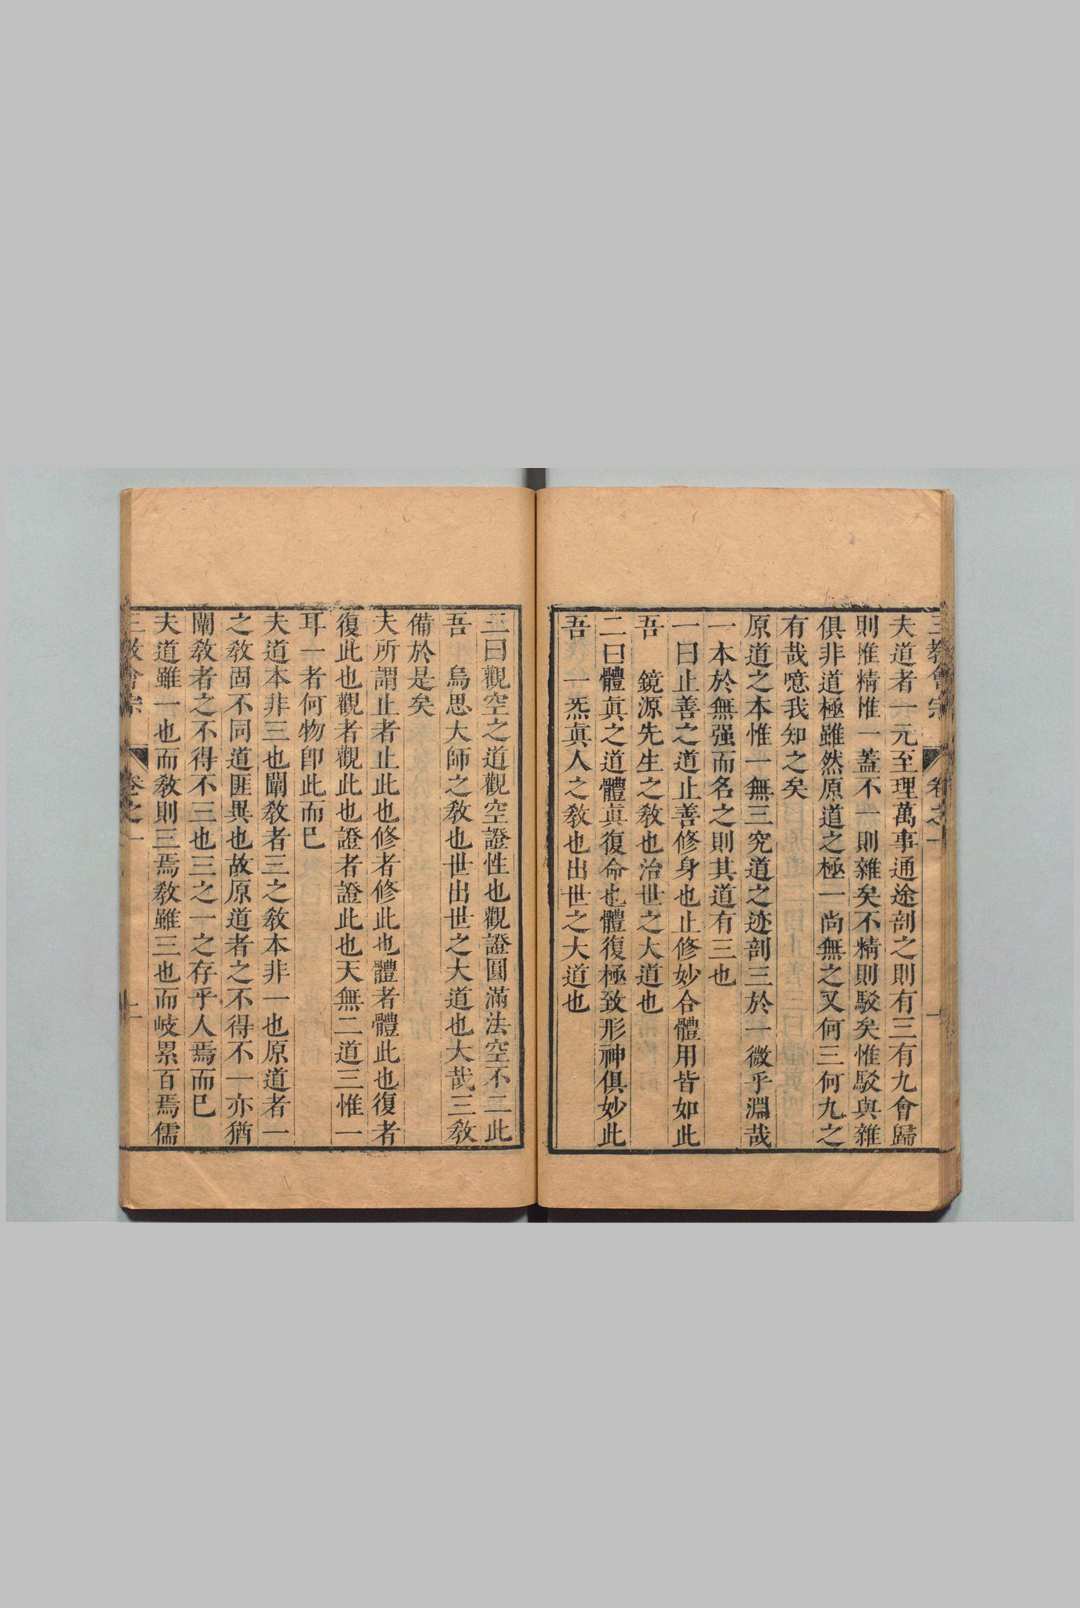 三教會宗 卷之一 一
夫道者一元至理萬事通途剖之則有三有九會歸
則惟精惟一蓋不一則雜矣不精則駁矣惟駁與雜
俱非道極雖然原道之極一尚無之又何三何九之
有哉噫我知之矣
原道之本惟一無三究道之迹剖三於一微乎淵哉
一本於無强而名之則其道有三也
一曰止善之道止善修身也止修妙合體用皆如此
吾 鏡源先生之敎也治世之大道也
二曰體眞之道體眞復命也體復極致形神俱妙此
吾 一炁眞人之敎也出世之大道也
三曰觀空之道觀空證性也觀證圓滿法空不二此
吾 烏思大師之敎也世出世之大道也大哉三敎
備於是矣
夫所謂止者止此也修者修此也體者體此也復者
復此也觀者觀此也證者證此也天無二道三惟一
耳一者何物卽此而已
夫道本非三也闡敎者三之敎本非一也原道者一
之敎固不同道匪異也故原道者之不得不一亦猶
闡敎者之不得不三也三之一之存乎人焉而已
夫道雖一也而敎則三焉敎雖三也而岐累百焉儒
三敎會宗 卷之一 二